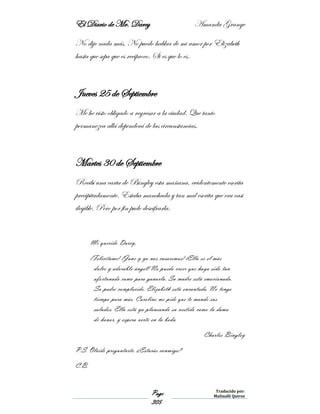 El Diario de Mr. Darcy Amanda Grange
No dije nada más. No puedo hablar de mi amor por Elizabeth
hasta que sepa que es recíproco. Si es que lo es.
Jueves 25 de Septiembre
Me he visto obligado a regresar a la ciudad. Que tanto
permanezca allá dependerá de las circunstancias.
Martes 30 de Septiembre
Recibí una carta de Bingley esta mañana, evidentemente escrita
precipitadamente. Estaba manchada y tan mal escrita que era casi
ilegible. Pero por fin pude descifrarla.
Mi querido Darcy,
¡Felicítame! ¡Jane y yo nos casaremos! ¡Ella es el más
dulce y adorable ángel! No puedo creer que haya sido tan
afortunado como para ganarla. Su madre está emocionada.
Su padre complacido. Elizabeth está encantada. No tengo
tiempo para más. Caroline me pide que te mande sus
saludos. Ella está ya planeando su vestido como la dama
de honor, y espera verte en la boda.
Charles Bingley
P.S. Olvidé preguntarte. ¿Estarás conmigo?
C.B.
Page
305
Traducido por:
Malinalli Quiroz